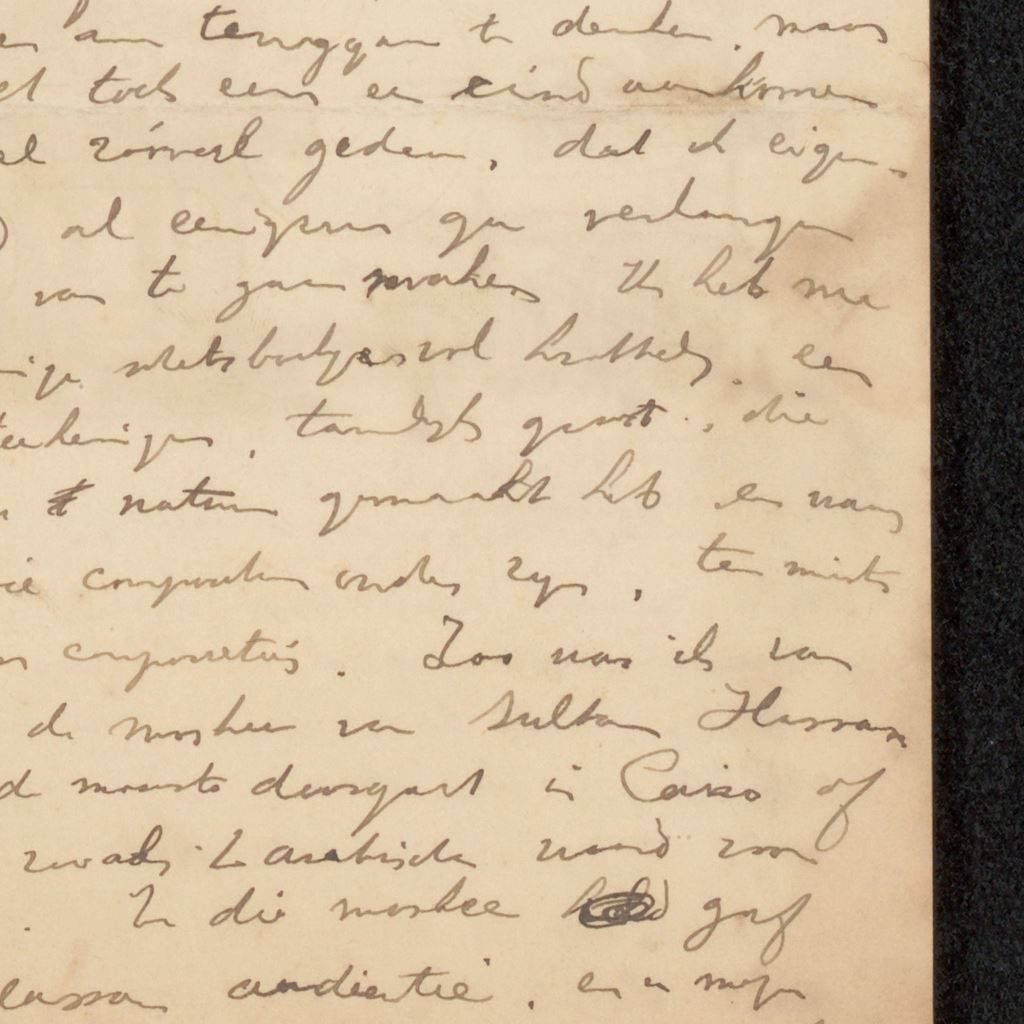 en aan teruggaan te denken, maar
et toch eens een eind aan komen
al zóóveel gedaan, dat ik eigen-
) al eenigszins ga verlangen
van te gaan maken. Ik heb me
nige schetsboekjes vol krabbels, een
teekeningen, tamelijk groot, die
natuur gemaakt heb en waar
ie composities onder zijn, ten minste
composities. Zoo was ik van
de moskee van Sultan Hassan
de mooiste in Cairo of
zooals 't arabische woord voor
In die moskee gaf
Hassan audientie, en in mijn